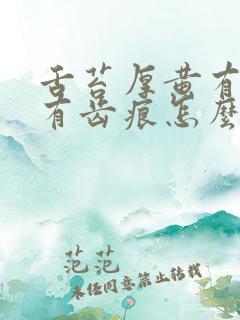 舌苔厚黄有
有齿痕怎麽
范范
未经同意禁止转载